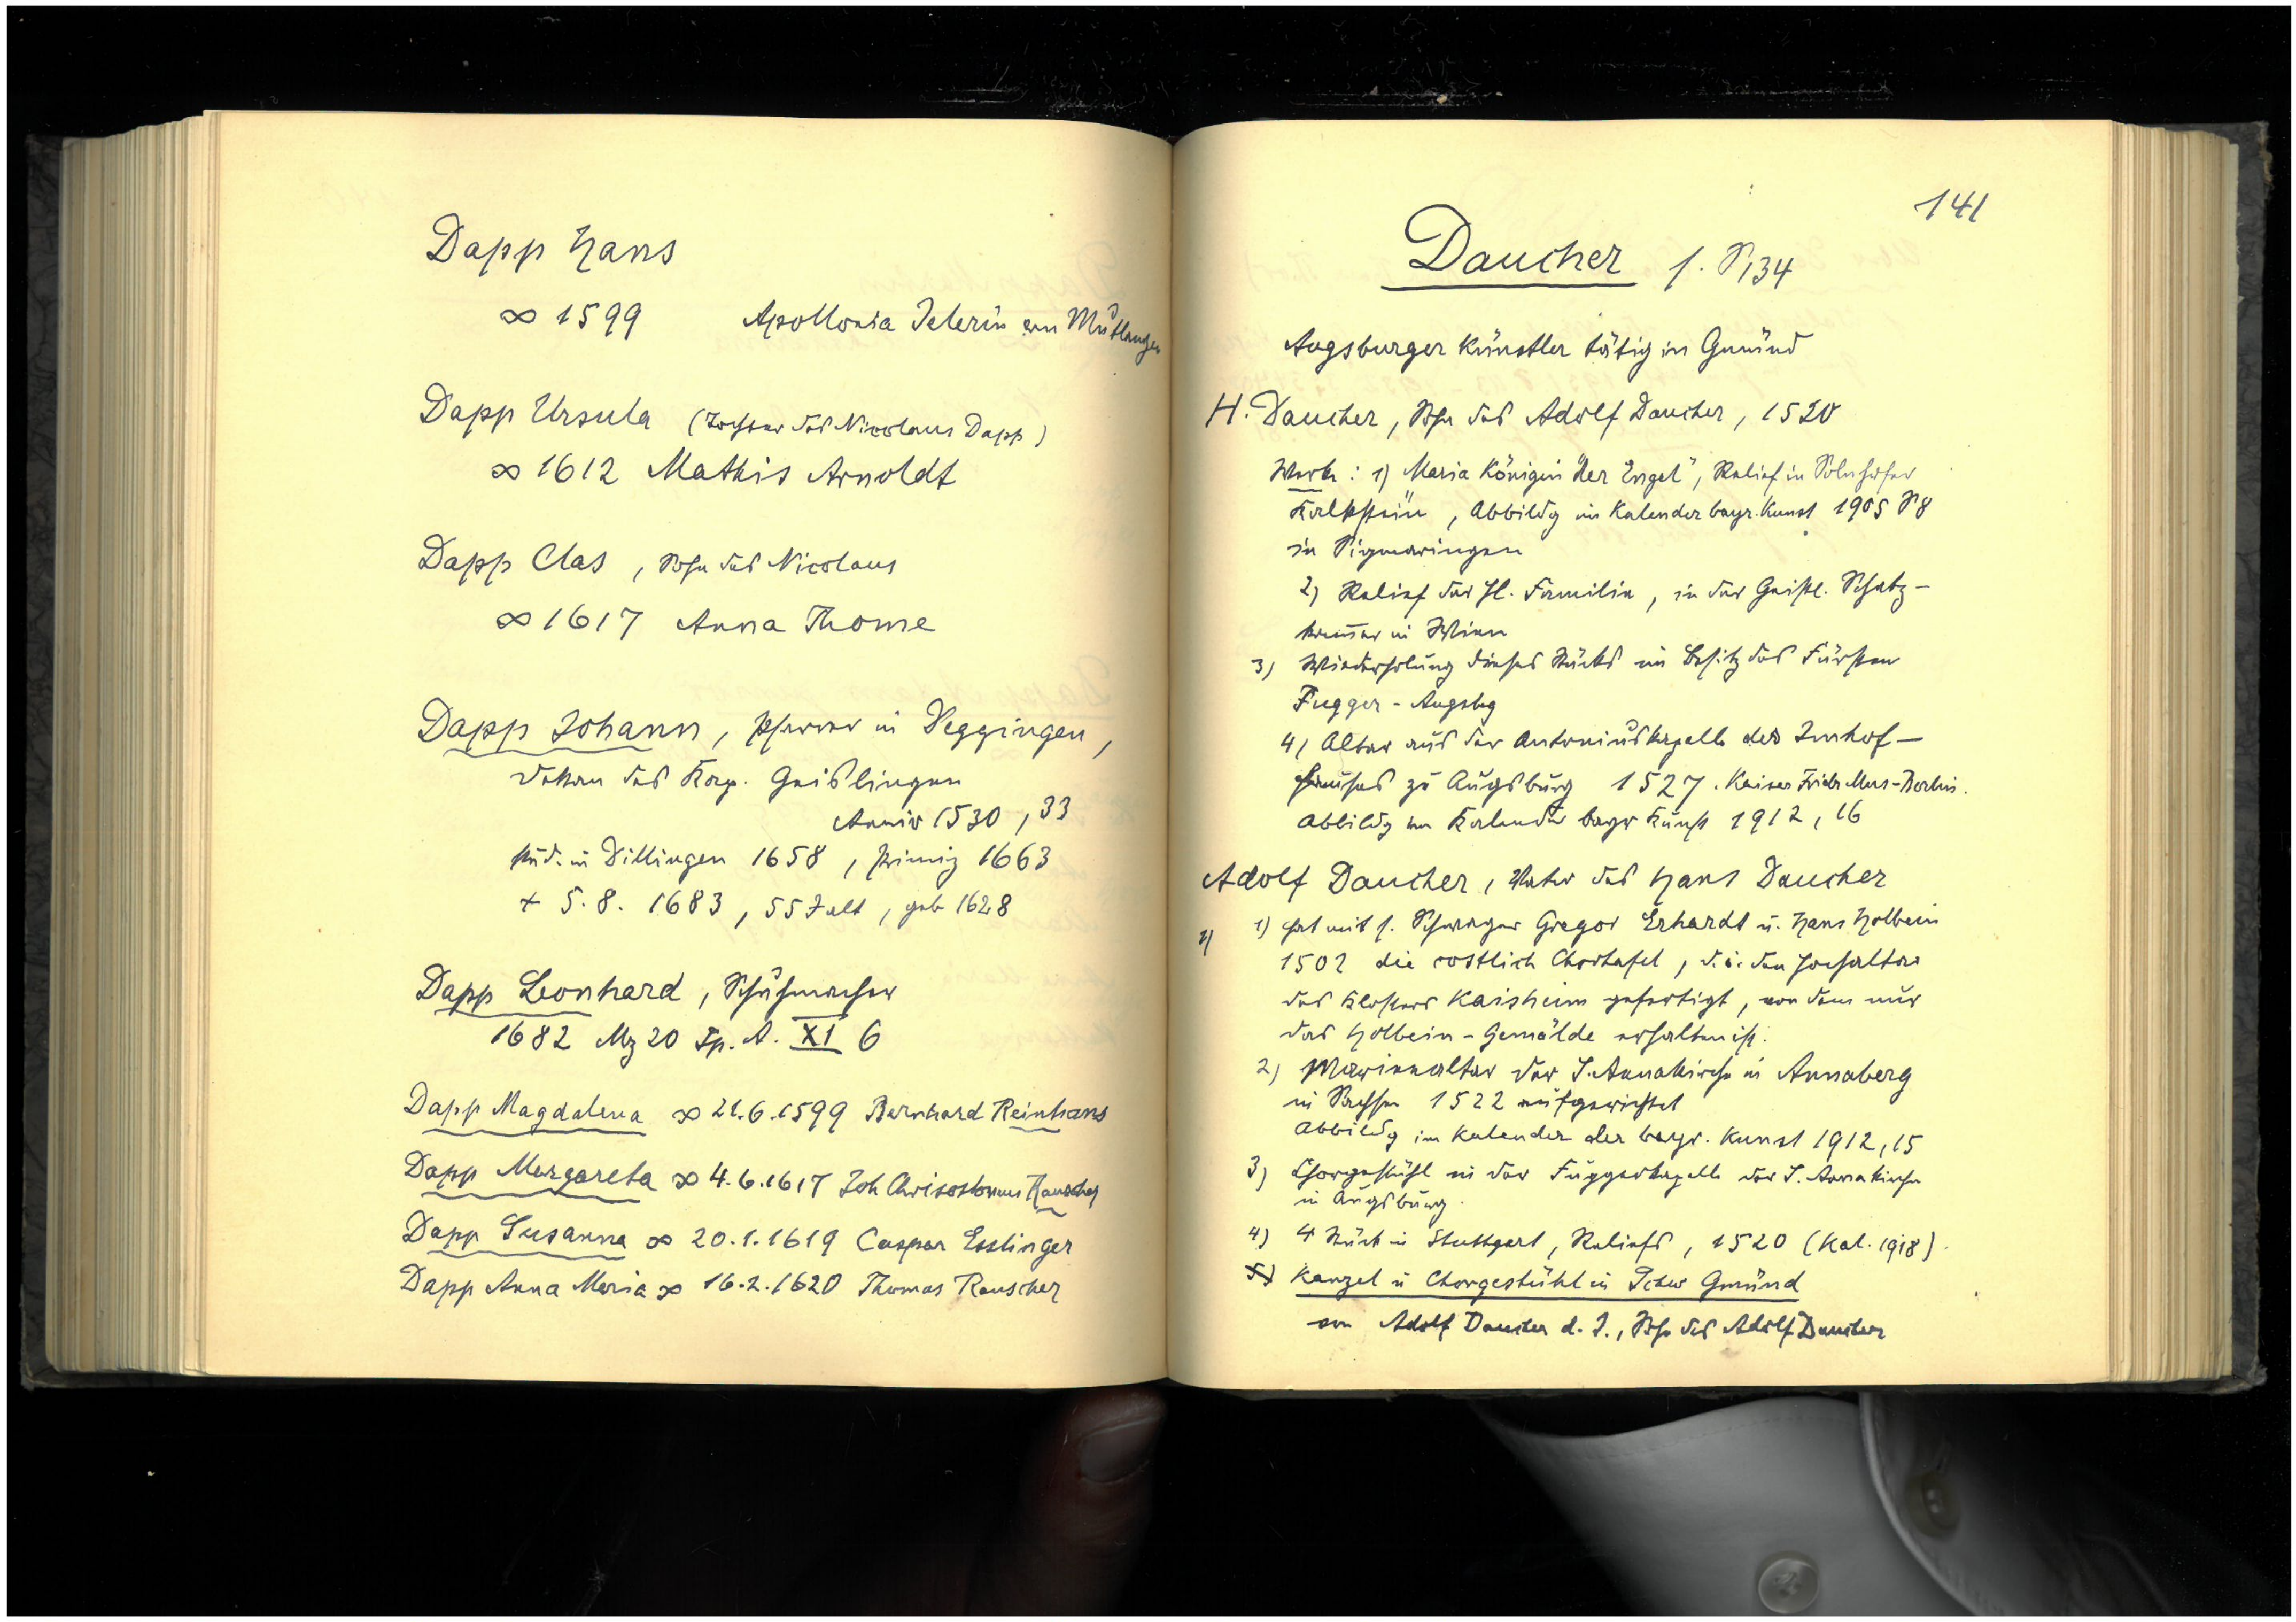 Dapp Hans
∞ 1599 Apollonia von Mutlangen
Dapp Ursula (Tochter des Nicolaus Dapp)
∞ 1612 Mathis Arnoldt
Dapp Clas, Sohn des Nicolaus
∞ 1617 Anna Thome
Dapp Johann, Pfarrer in Deggingen,
Dekan des Kap. Geislingen
Anniv 1530, 33
stud. in Dillingen 1658, Primiz 1663
+ 5.8. 1683, 55 J alt, geb 1628
Dapp Leonhard, Schuhmacher
1682 Mz 20 Sp. A. XI 6
Dapp Magdalena ∞ 21.6.1599 Bernhard Reinhans
Dapp Margareta ∞ 4.6.1617 Joh Chrisostomus Rauscher
Dapp Susanna ∞ 20.1.1619 Caspar Esslinger
Dapp Anna Maria ∞ 16.2.1620 Thomas Rauscher
141
Daucher s. S 134
Augsburger Künstler tätig in Gmünd
H. Daucher, Sohn des Adolf Daucher, 1520
Werke: 1) Maria Königin "der Engel", Relief in Solnhofer
Kalkstein, Abbildg im Kalender bayr. Kunst 1905 S 8
in Sigmaringen
2) Relief der Hl. Familie, in der Geistl. Schatz-
kammer in Wien
3) Wiederholung dieses Stücks im Besitz des Fürsten
Fugger - Augsbg
4) Altar aus der Antoniuskapelle des Imhof-
hauses zu Augsburg 1527. Kaiser Friedr Mus-Berlin.
Abbildg im Kalender bayr Kunst 1912, 16
Adolf Daucher, Vater des Hans Daucher
1) 1) hat mit s. Schwager Gregor Erhardt u. Hans Holbein
1502 die costlich Chortafel, d.i. den Hochaltar
des Klosters Kaisheim gefertigt, von dem nur
das Holbein-Gemälde erhalten ist.
2) Marienaltar der S. Annakirche in Annaberg
in Sachsen 1522 aufgerichtet
Abbildg im Kalender der bayr. Kunst 1912, 15
3) Chorgestühl in der Fuggerkapelle der S. Annakirche
in Augsburg.
4) 4 Stück in Stuttgart, Reliefs, 1520 (Kal. 1918).
5) Kanzel u Chorgestühl in Schw Gmünd
von Adolf Daucher d. J., Sohn des Adolf Daucher